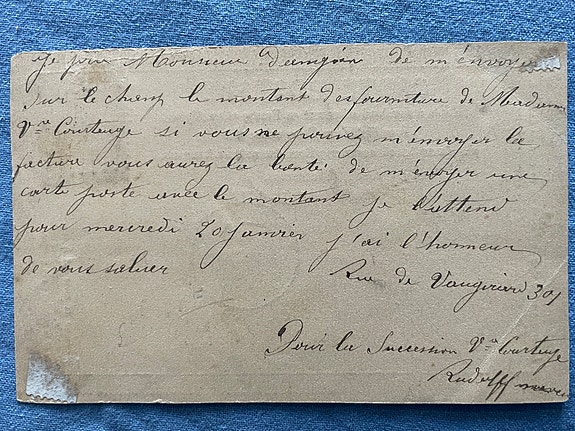 Je prie Monsieur de m'envoyer
sur le champ le montant des fourniture de Madame
Vve Courteuge si vous ne pouvez m'envoyer la
facture vous aurez la bonté de m'envoyer une
carte poste avec le montant je l'attend
pour mercredi 20 janvier j'ai l'honneur
de vous saluer
Rue de Vaugirard 301
Pour la Succession Vve Courteuge
Rudolff